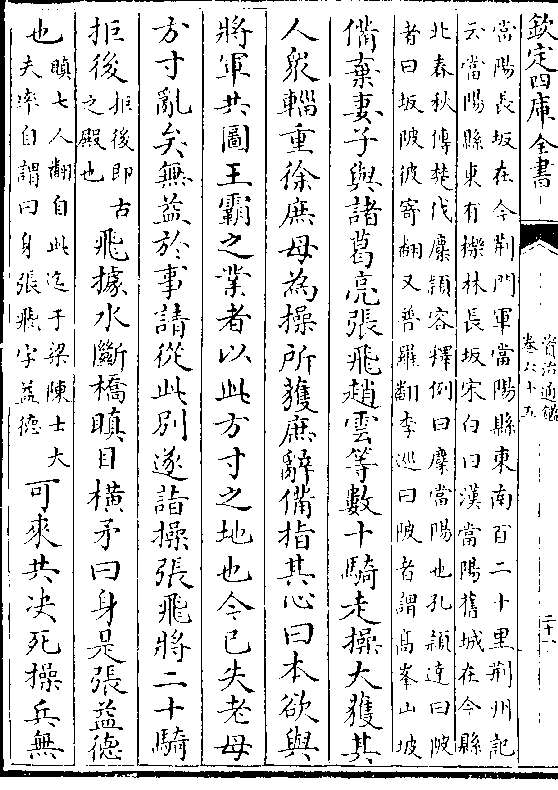 欽定四庫全書
資治通鑑
卷六十五
當陽長坂在今荆門軍當陽縣東南百二十里荆州記
云當陽縣東有櫟林長坂宋白曰漢當陽舊城在今縣
北春秋傳楚伐麇潁容釋例曰麇當陽也孔穎達曰陂
者曰坂陂彼寄翻又普羅翻李巡曰陂者謂高峯山坡
備棄妻子與諸葛亮張飛趙雲等數十騎走操大獲其
人衆輜重徐庶母為操所獲庶辭備指其心曰本欲與
將軍共圖王霸之業者以此方寸之地也今已失老母
方寸亂矣無益於事請從此别遂詣操張飛將二十騎
拒後拒後即古之殿也飛據水斷橋瞋目横矛曰身是張益德
瞋七人翻自此迄于梁陳士大
也夫率自謂曰身張飛字益德可來共決死操兵無